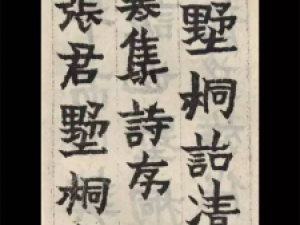 墅桐詁清
集詩序
張君墅桐